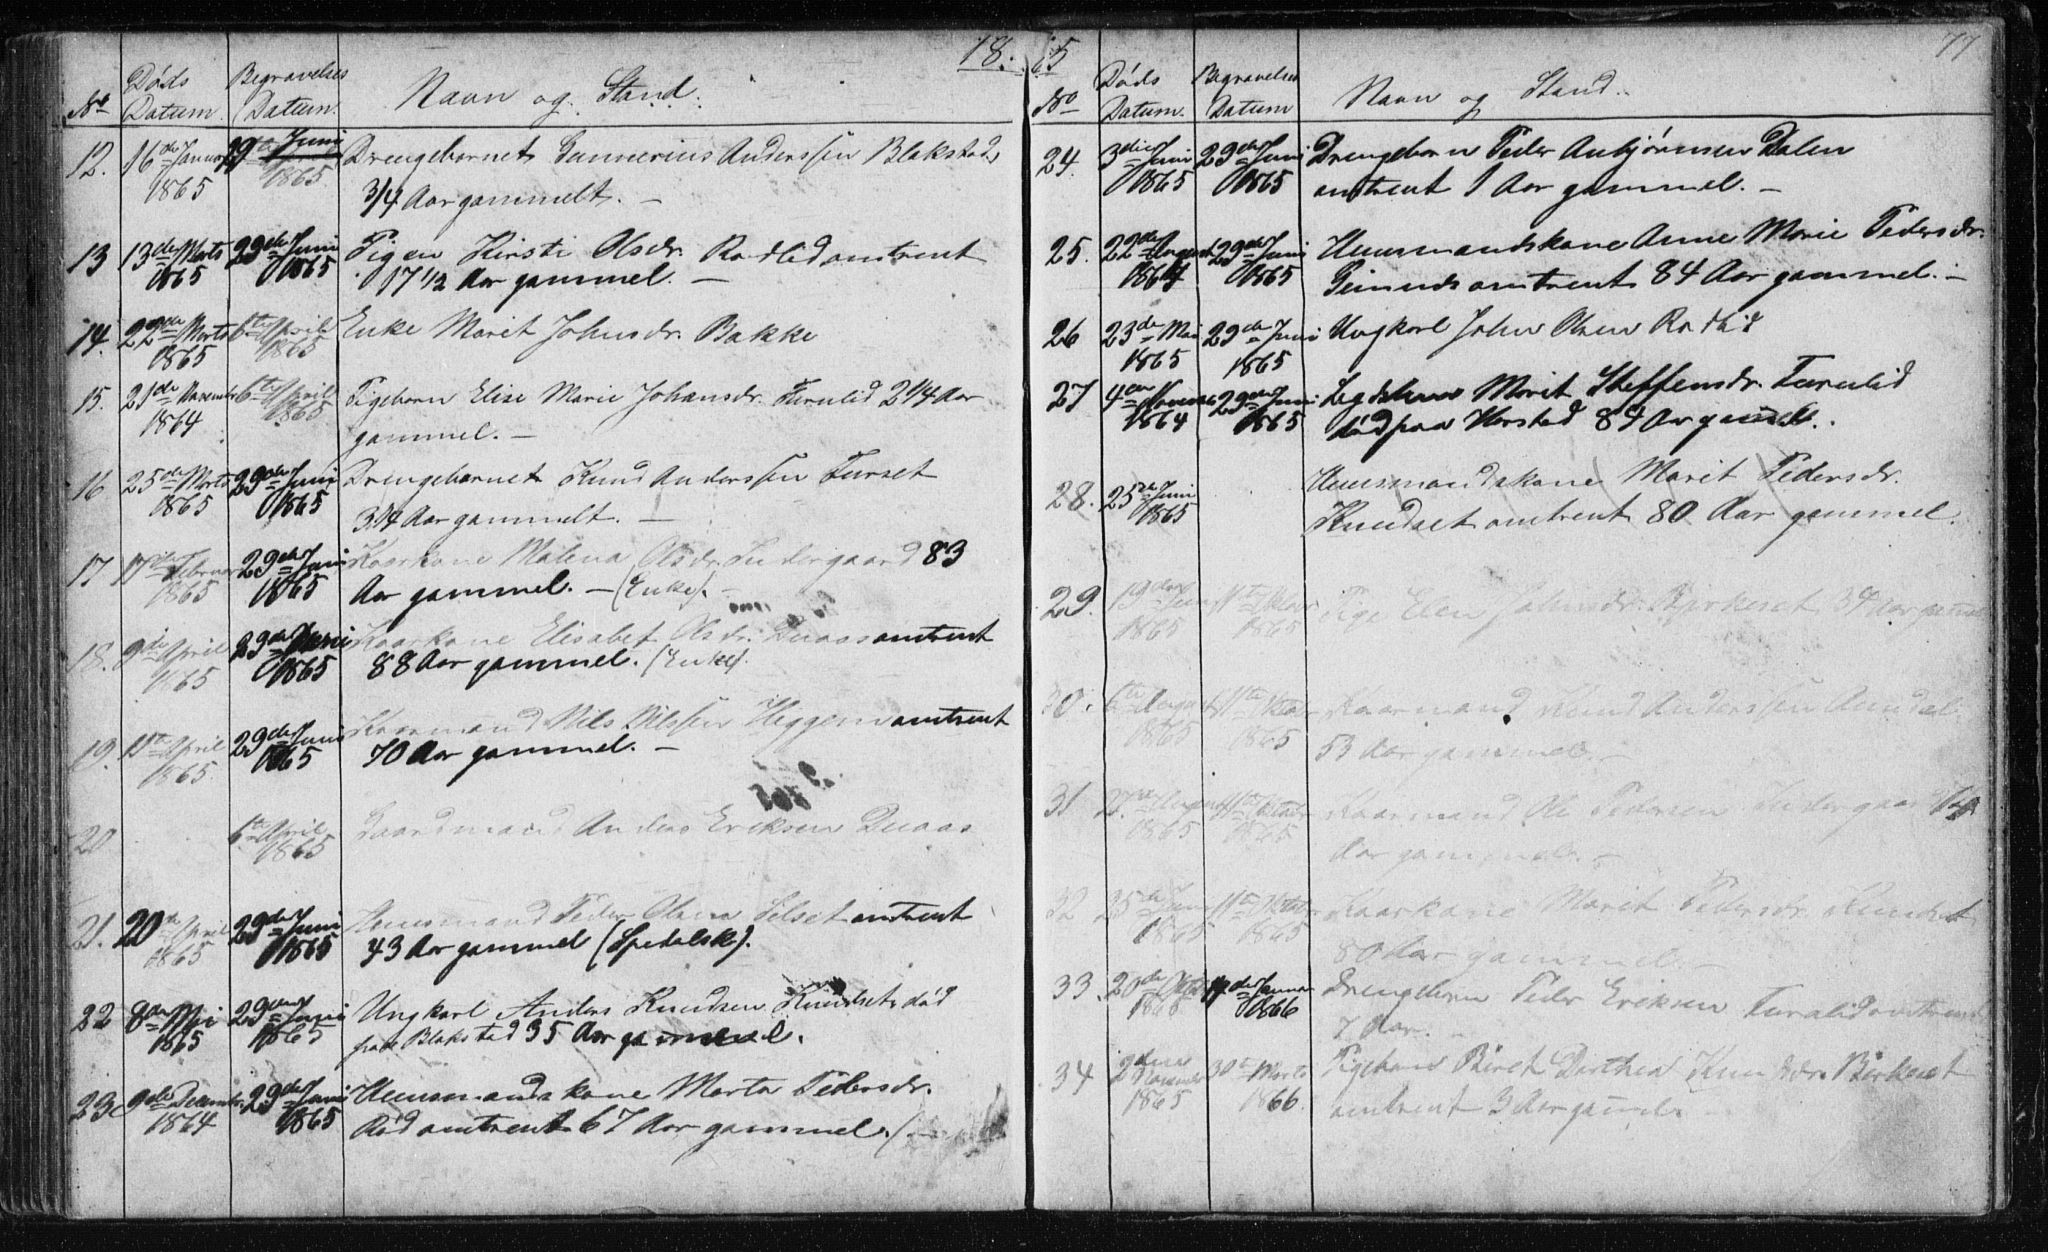 18. 65
77
No
Døds
Datum.
Begravelses
Datum.
Navn og Stand.
12. 16de Januar 29de Juni Drengebarnet Gunnerius Anderssen Blakstad
1865 1865 3/4 Aar gammelt. —
13 13de Marts 29de Juni Pigen Kirsti Olsdr. Rødlid omtrent
1865 1865 17 1/2 Aar gammel. —
14. 22de Marts 6te April Enke Marit Johnsdr. Bakke
1865 1865
15. 21de November 6te April Pigebarn Elise Marie Johansdr. Furulid 2 1/4 Aar
1864 1865 gammel. —
16 25de Marts 29de Juni Drengebarnet Knud Anderssen Furset
1865 1865 3/4 Aar gammelt. —
17 17de Februar 29de Juni Kaarkone Malena Olsdr. Indergaard 83
1865 1865 Aar gammel. — (Enke). —
18. 9de April 29de Juni Kaarkone Elisabet Olsdr. omtrent
1865 1865 88 Aar gammel. (Enke).
19. 11te April 29de Juni Kaarmand Nils Nilssen Higgem omtrent
1865 1865 70 Aar gammel. —
20 6te April Gaardmand Anders Eriksen
1865
21. 20de April 29de Juni Huusmand Peder Olsen Selset omtrent
1865 1865 43 Aar gammel (Spedalsk).
22 8de Mai 29de Juni Ungkarl Anders Knudsen Knudset, død
1865 1865 paa Blakstad 35 Aar gammel.
23. 9de December 29de Juni Huusmandskone Marta Pedersdr.
1864 1865 Rød omtrent 67 Aar gammel. —
No
Døds
Datum.
Begravelses
Datum
Navn og Stand.
24. 3die Juni 29de Juni Drengebarn Peder Anbjørnsen Dalen
1865 1865 omtrent 1 Aar gammel. —
25. 22de August 29de Juni Huusmandskone Anne Marie Pedersdr.
1864 1865 omtrent 84 Aar gammel. —
26 23de Mai 29de Juni Ungkarl John Olsen Rødlid
1865 1865
27 4de November 29de Juni Lægdslem Marit Steffensdr. Furulid
1864 1865 død paa Harstad 84 Aar gammel.
28. 25de Juni Huusmandskone Marit Pedersdr.
1865 Knudset omtrent 80 Aar gammel.
29. 19de Juni 11te Oktober Pige Elen Johnsdr. Birkeset 34 Aar gammel
1865 1865
30. 6te August 11te Oktober Kaarmand Knud Anderssen
1865 1865 53 Aar gammel. —
31 27de August 11te Oktober Kaarmand Ole Pedersen Indergaard
1865 1865 Aar gammel. —
32 25de Juni 11te Oktober Kaarkone Marit Pedersdr. Knudset
1865 1865 80 Aar gammel. —
33. 20de Oktober Januar Drengebarn Peder Eriksen Furulid omtrent
1865 1866 7 Aar. —
34 2den November 30te Marts Pigebarn Beret Dorthea Knudsdr. Birkeset
1865 1866. omtrent 3 Aar gammel. —